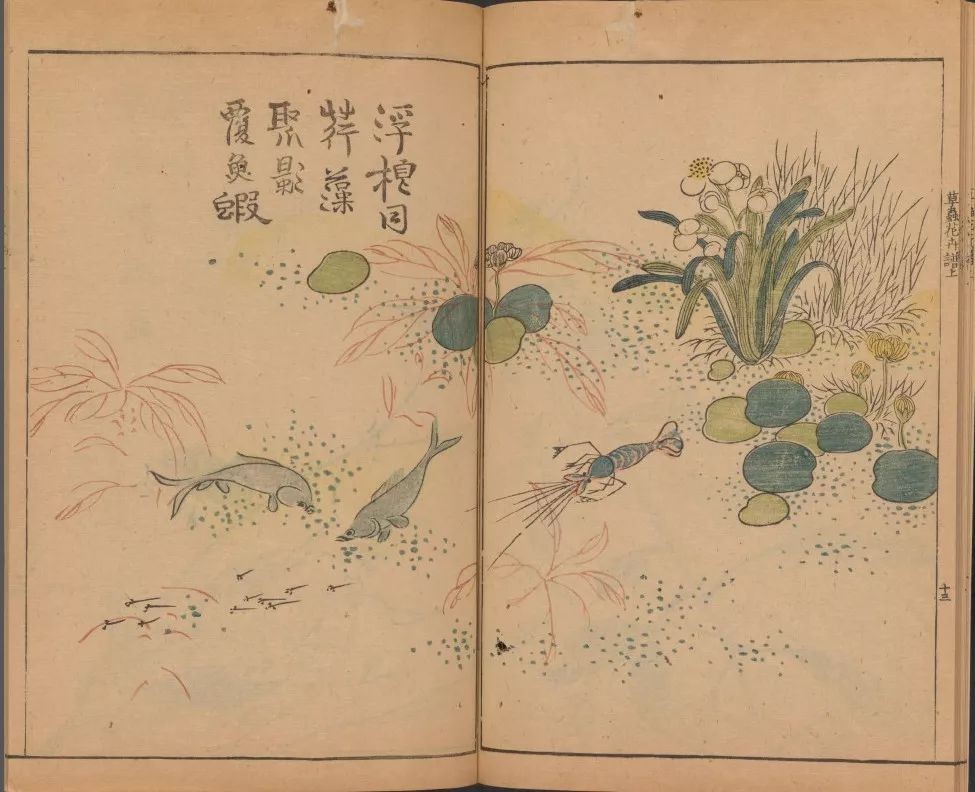 浮根同
荇藻
聚影
覆魚蝦
草蟲花卉譜上
十三